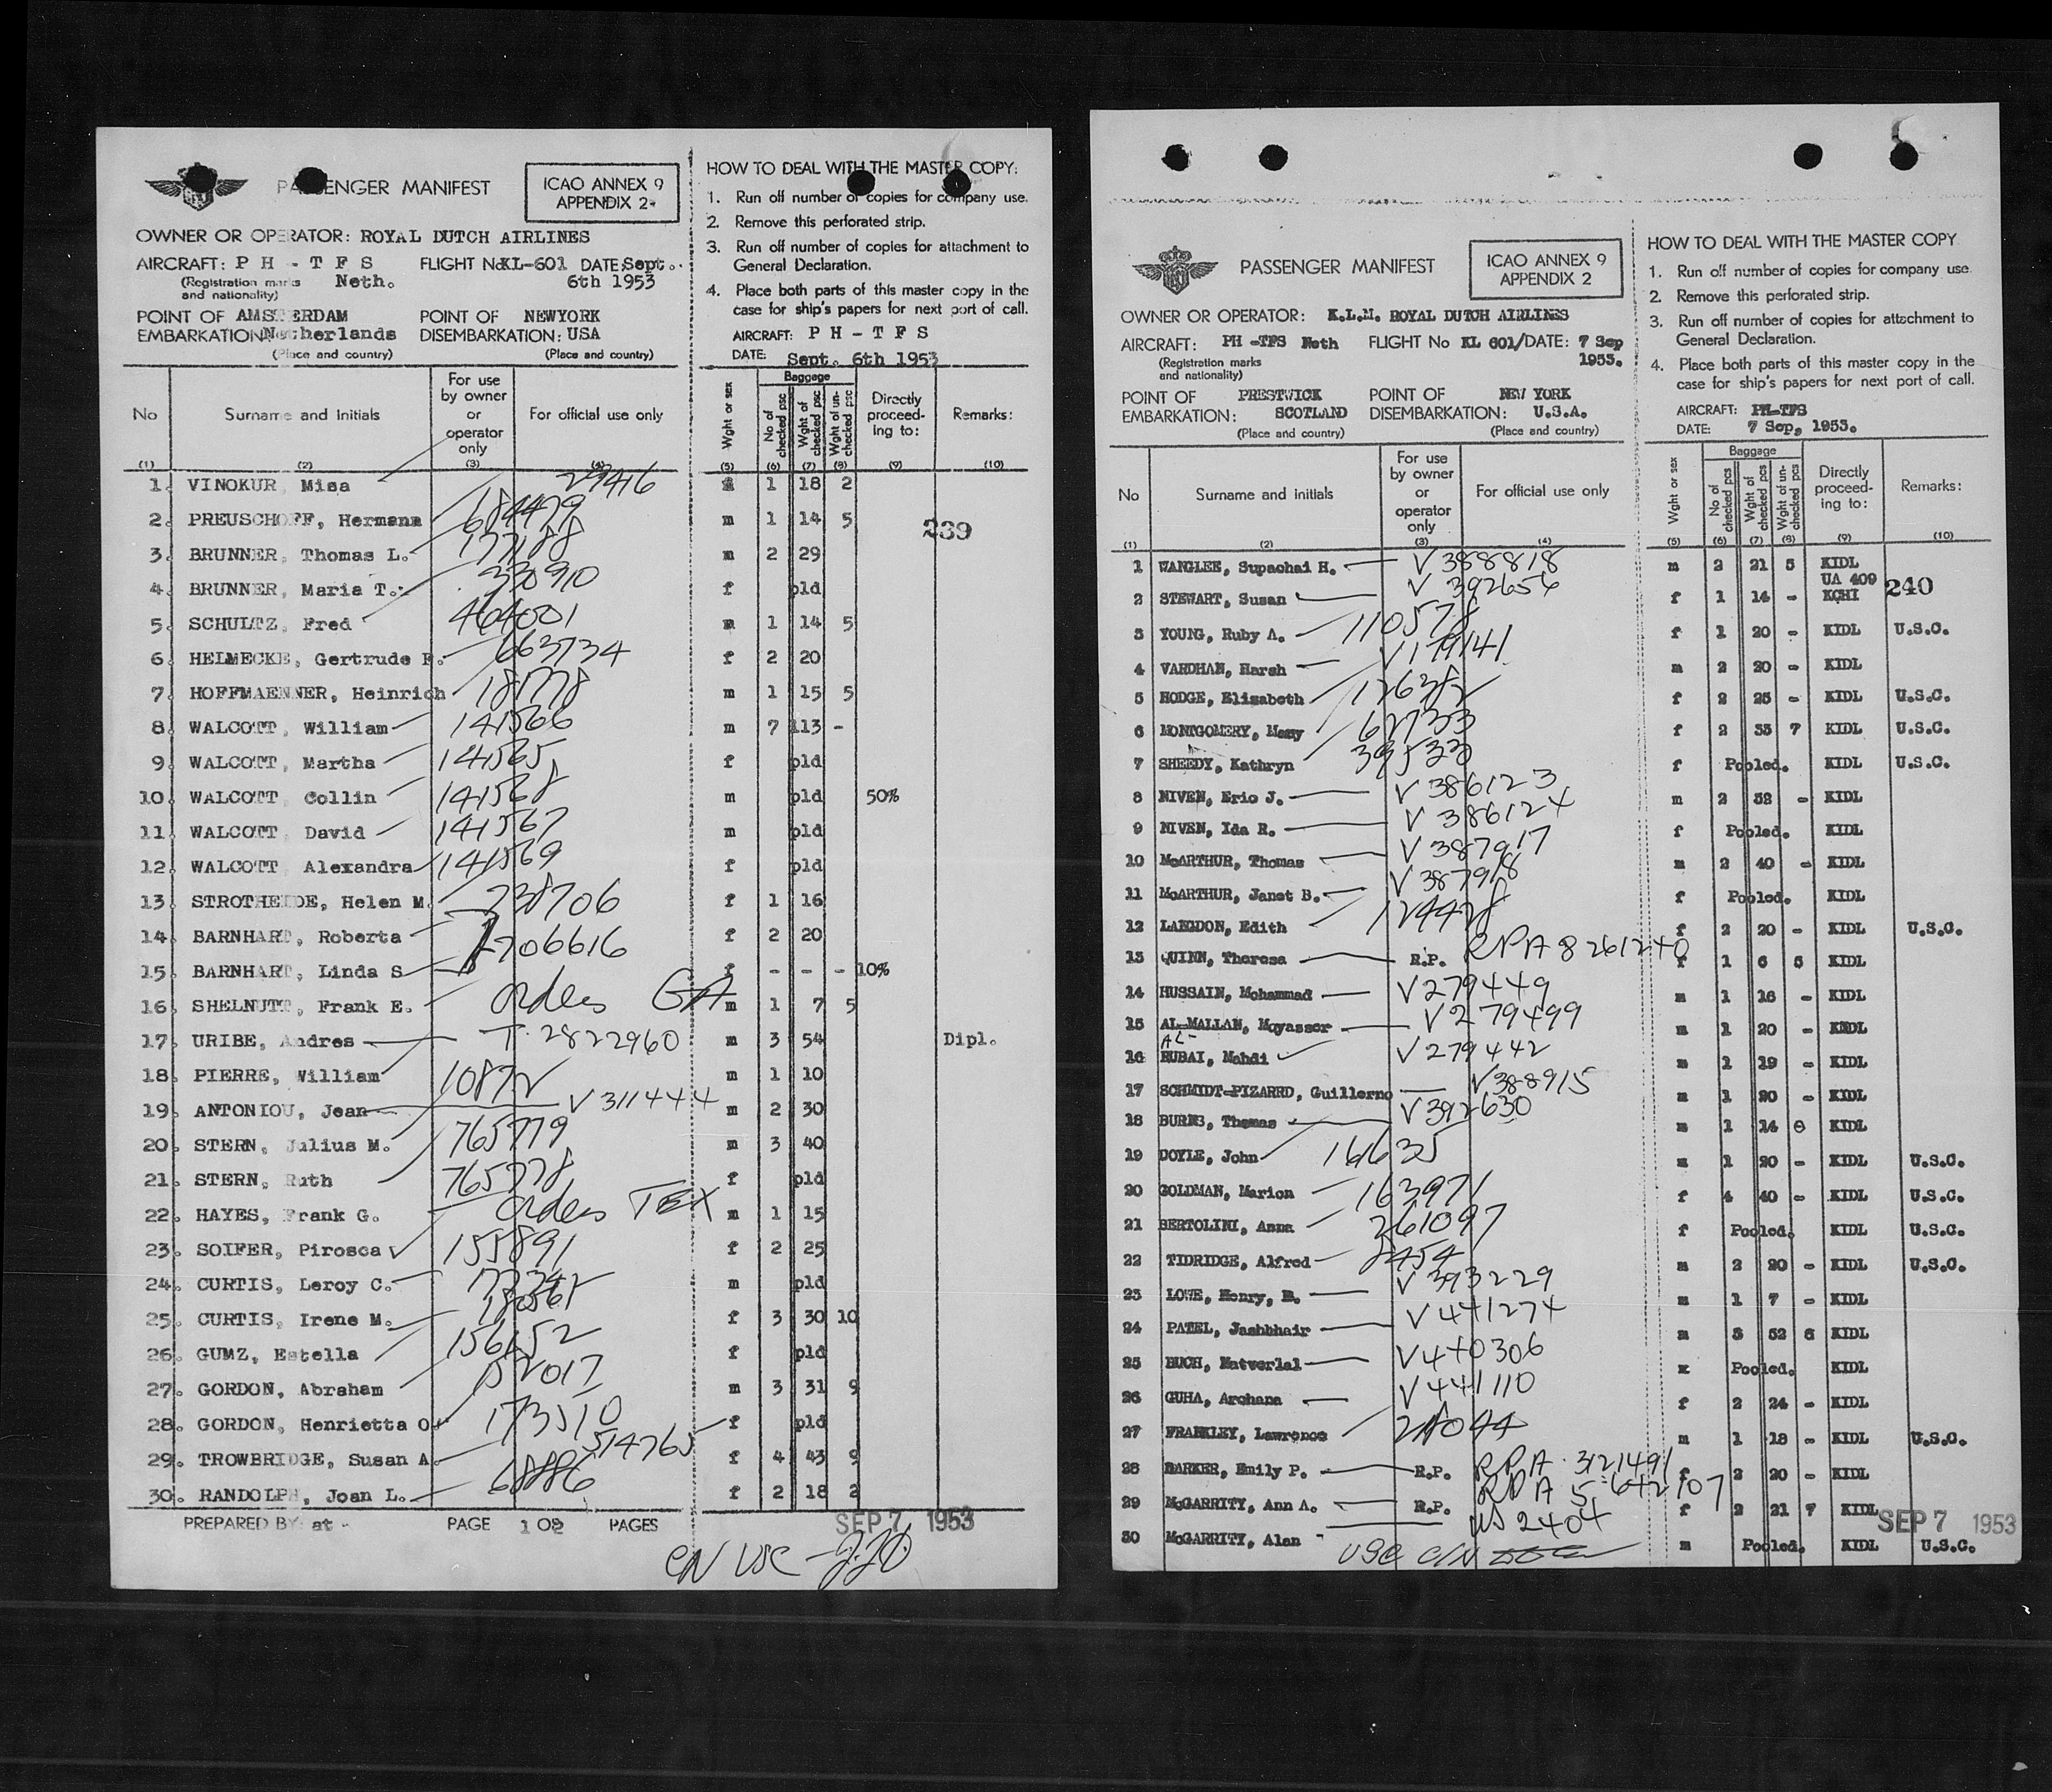 PASSENGER MANIFEST
ICAO ANNEX 9
APPENDIX 2
OWNER OR OPERATOR: ROYAL DUTCH AIRLINES
AIRCRAFT: P H - T F S FLIGHT No KL-601 DATE: Sept.
(Registration marks and nationality) Neth. 6th 1953
POINT OF EMBARKATION: AMSTERDAM Netherlands POINT OF DISEMBARKATION: NEWYORK USA
(Place and country) (Place and country)
HOW TO DEAL WITH THE MASTER COPY:
1. Run off number of copies for company use.
2. Remove this perforated strip.
3. Run off number of copies for attachment to
General Declaration.
4. Place both parts of this master copy in the
case for ship's papers for next port of call.
AIRCRAFT: P H - T F S
DATE: Sept. 6th 1953
No Surname and Initials For use by owner or operator only For official use only Wght or sex Baggage No of checked psc Wght of checked psc Wght of un-checked psc Directly proceed-ing to: Remarks:
(1) (2) (3) (4) (5) (6) (7) (8) (9) (10)
1. VINOKUR, Misa 29416 1 18 2
2. PREUSCHOFF, Hermann 684479 m 1 14 5
239
3. BRUNNER, Thomas L. 177188 m 2 29
4. BRUNNER, Maria T. 330910 f pld
5. SCHULTZ, Fred 464001 m 1 14 5
6. HELMECKE, Gertrude E. 663734 f 2 20
7. HOFFMAENNER, Heinrich 181778 m 1 15 5
8. WALCOTT, William 141566 m 7 113 -
9. WALCOTT, Martha 141565 f pld
10. WALCOTT Collin 141568 m pld 50%
11. WALCOTT, David 141567 m pld
12. WALCOTT Alexandra 141569 f pld
13. STROTHEIDE, Helen M. 738706 f 1 16
14. BARNHART, Roberta 706616 f 2 20
15. BARNHART, Linda S f - - - 10%
16. SHELNUTT, Frank E. orders GA m 1 7 5
17. URIBE, Andres T. 2822960 m 3 54 Dipl.
18. PIERRE, William 10872 m 1 10
19. ANTONIOU, Jean V 311444 m 2 30
20. STERN, Julius M. 765779 m 3 40
21. STERN, Ruth 765778 f pld
22. HAYES, Frank G. orders TEX m 1 15
23. SOIFER, Pirosca 155891 f 2 25
24. CURTIS, Leroy C. m pld
25. CURTIS, Irene M. f 3 30 10
26. GUMZ, Estella 156152 f pld
27. GORDON, Abraham m 3 31 9
28. GORDON, Henrietta O. 173510 f pld
29. TROWBRIDGE, Susan A. 514765 f 4 43 9
30. RANDOLPH, Joan L. 68886 f 2 18 2
PREPARED BY: at - PAGE 1 OF 2 PAGES
SEP 7 1953
CN USC - 220
PASSENGER MANIFEST
ICAO ANNEX 9
APPENDIX 2
OWNER OR OPERATOR: K.L.M. ROYAL DUTCH AIRLINES
AIRCRAFT: PH-TFS Neth FLIGHT No KL 601/ DATE: 7 Sep
(Registration marks and nationality) 1953.
POINT OF EMBARKATION: PRESTWICK SCOTLAND POINT OF DISEMBARKATION: NEW YORK U.S.A.
(Place and country) (Place and country)
HOW TO DEAL WITH THE MASTER COPY
1. Run off number of copies for company use.
2. Remove this perforated strip.
3. Run off number of copies for attachment to
General Declaration.
4. Place both parts of this master copy in the
case for ship's papers for next port of call.
AIRCRAFT: PH-TFS
DATE: 7 Sep, 1953.
No Surname and initials For use by owner or operator only For official use only Wght or sex Baggage No of checked pcs Wght of checked pcs Wght of un-checked pcs Directly proceed-ing to: Remarks:
(1) (2) (3) (4) (5) (6) (7) (8) (9) (10)
1 WANGLEE, Supachai H. V 388818 m 2 21 5 KIDL UA 409
2 STEWART, Susan V 392656 f 1 14 - KCHI 240
3 YOUNG, Ruby A. 110578 f 1 20 - KIDL U.S.C.
4 VARDHAN, Harsh V179141 m 2 20 - KIDL
5 HODGE, Elizabeth 17638 f 2 25 - KIDL U.S.C.
6 MONTGOMERY, Mary 62733 f 2 35 7 KIDL U.S.C.
7 SHEEDY, Kathryn f Pooled. KIDL U.S.C.
8 NIVEN, Eric J. V 386123 m 2 52 - KIDL
9 NIVEN, Ida R. V 386124 f Pooled. KIDL
10 McARTHUR, Thomas V 387917 m 2 40 - KIDL
11 McARTHUR, Janet B. V 387918 f Pooled. KIDL
12 LANGDON, Edith 124428 f 2 20 - KIDL U.S.C.
13 QUINN, Theresa R.P. RPA 8261240 f 1 6 5 KIDL
14 HUSSAIN, Mohammad V279449 m 1 16 - KIDL
15 AL-MALLAN, Moyasser V279499 m 1 20 - KIDL
16 AL- RUBAI, Mahdi V279442 m 1 19 - KIDL
17 SCHMIDT-PIZARRO, Guillermo V388915 m 1 20 - KIDL
18 BURNS, Thomas V392630 m 1 14 KIDL
19 DOYLE, John 16635 m 1 20 - KIDL U.S.C.
20 GOLDMAN, Marion 163971 f 4 40 - KIDL U.S.C.
21 BERTOLINI, Anna 261097 f Pooled. KIDL U.S.C.
22 TIDRIDGE, Alfred 8454 m 2 20 - KIDL U.S.C.
23 LOWE, Henry, B. V 393229 m 1 7 - KIDL
24 PATEL, Jashbhair V 441274 m 3 52 5 KIDL
25 BUCH, Natverlal V440306 Pooled. KIDL
26 GUHA, Archana V441110 f 2 24 - KIDL
27 FRANKLEY, Lawrence m 1 18 - KIDL U.S.C.
28 BARKER, Emily P. R.P. RPA 3121491 f 2 20 - KIDL
29 McGARRITY, Ann A. R.P. RPA 5642107 f 2 21 7 KIDL
30 McGARRITY, Alan US 2404 m Pooled. KIDL U.S.C.
USC C/N
SEP 7 1953